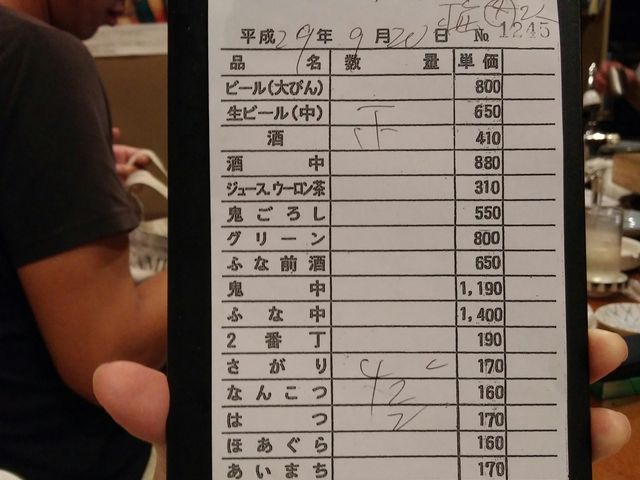 平成29年 9月20日 № 1245
品名 数量 単価
ビール(大びん) 800
生ビール(中) 正 650
酒 410
酒中 880
ジュース.ウーロン茶 310
鬼ごろし 550
グリーン 800
ふな前酒 650
鬼中 1,190
ふな中 1,400
2番丁 190
さがり 170
なんこつ 2 160
はつ 2 170
ほあぐら 160
あいまち 170